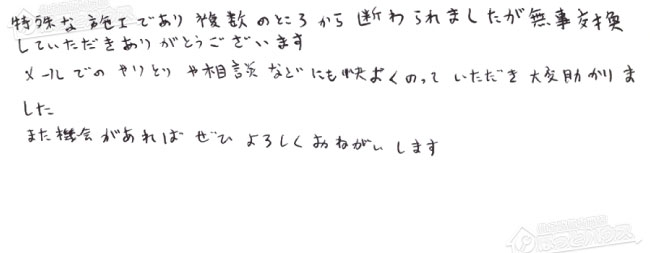 特殊な施工であり複数のところから断わられましたが無事交換
していただきありがとうございます
メールでのやりとりや相談などにも快よくのっていただき大変助かりま
した
また機会があればぜひよろしくおねがいします